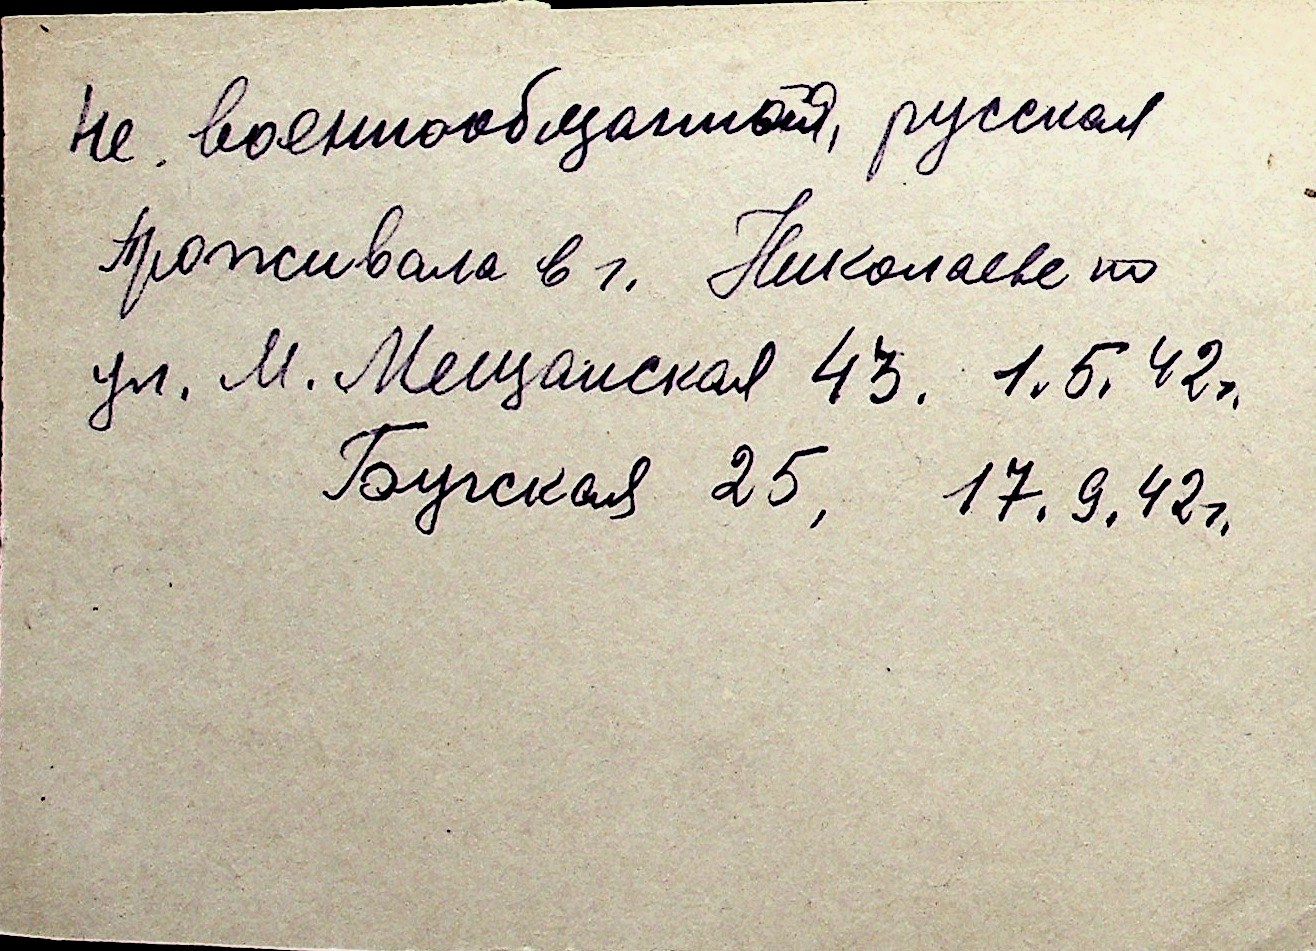 Не военнообязанная, русская
проживала в г. Николаеве по
ул. М. Мещанская 43. 1.5.42г.
Бугская 25, 17.9.42г.